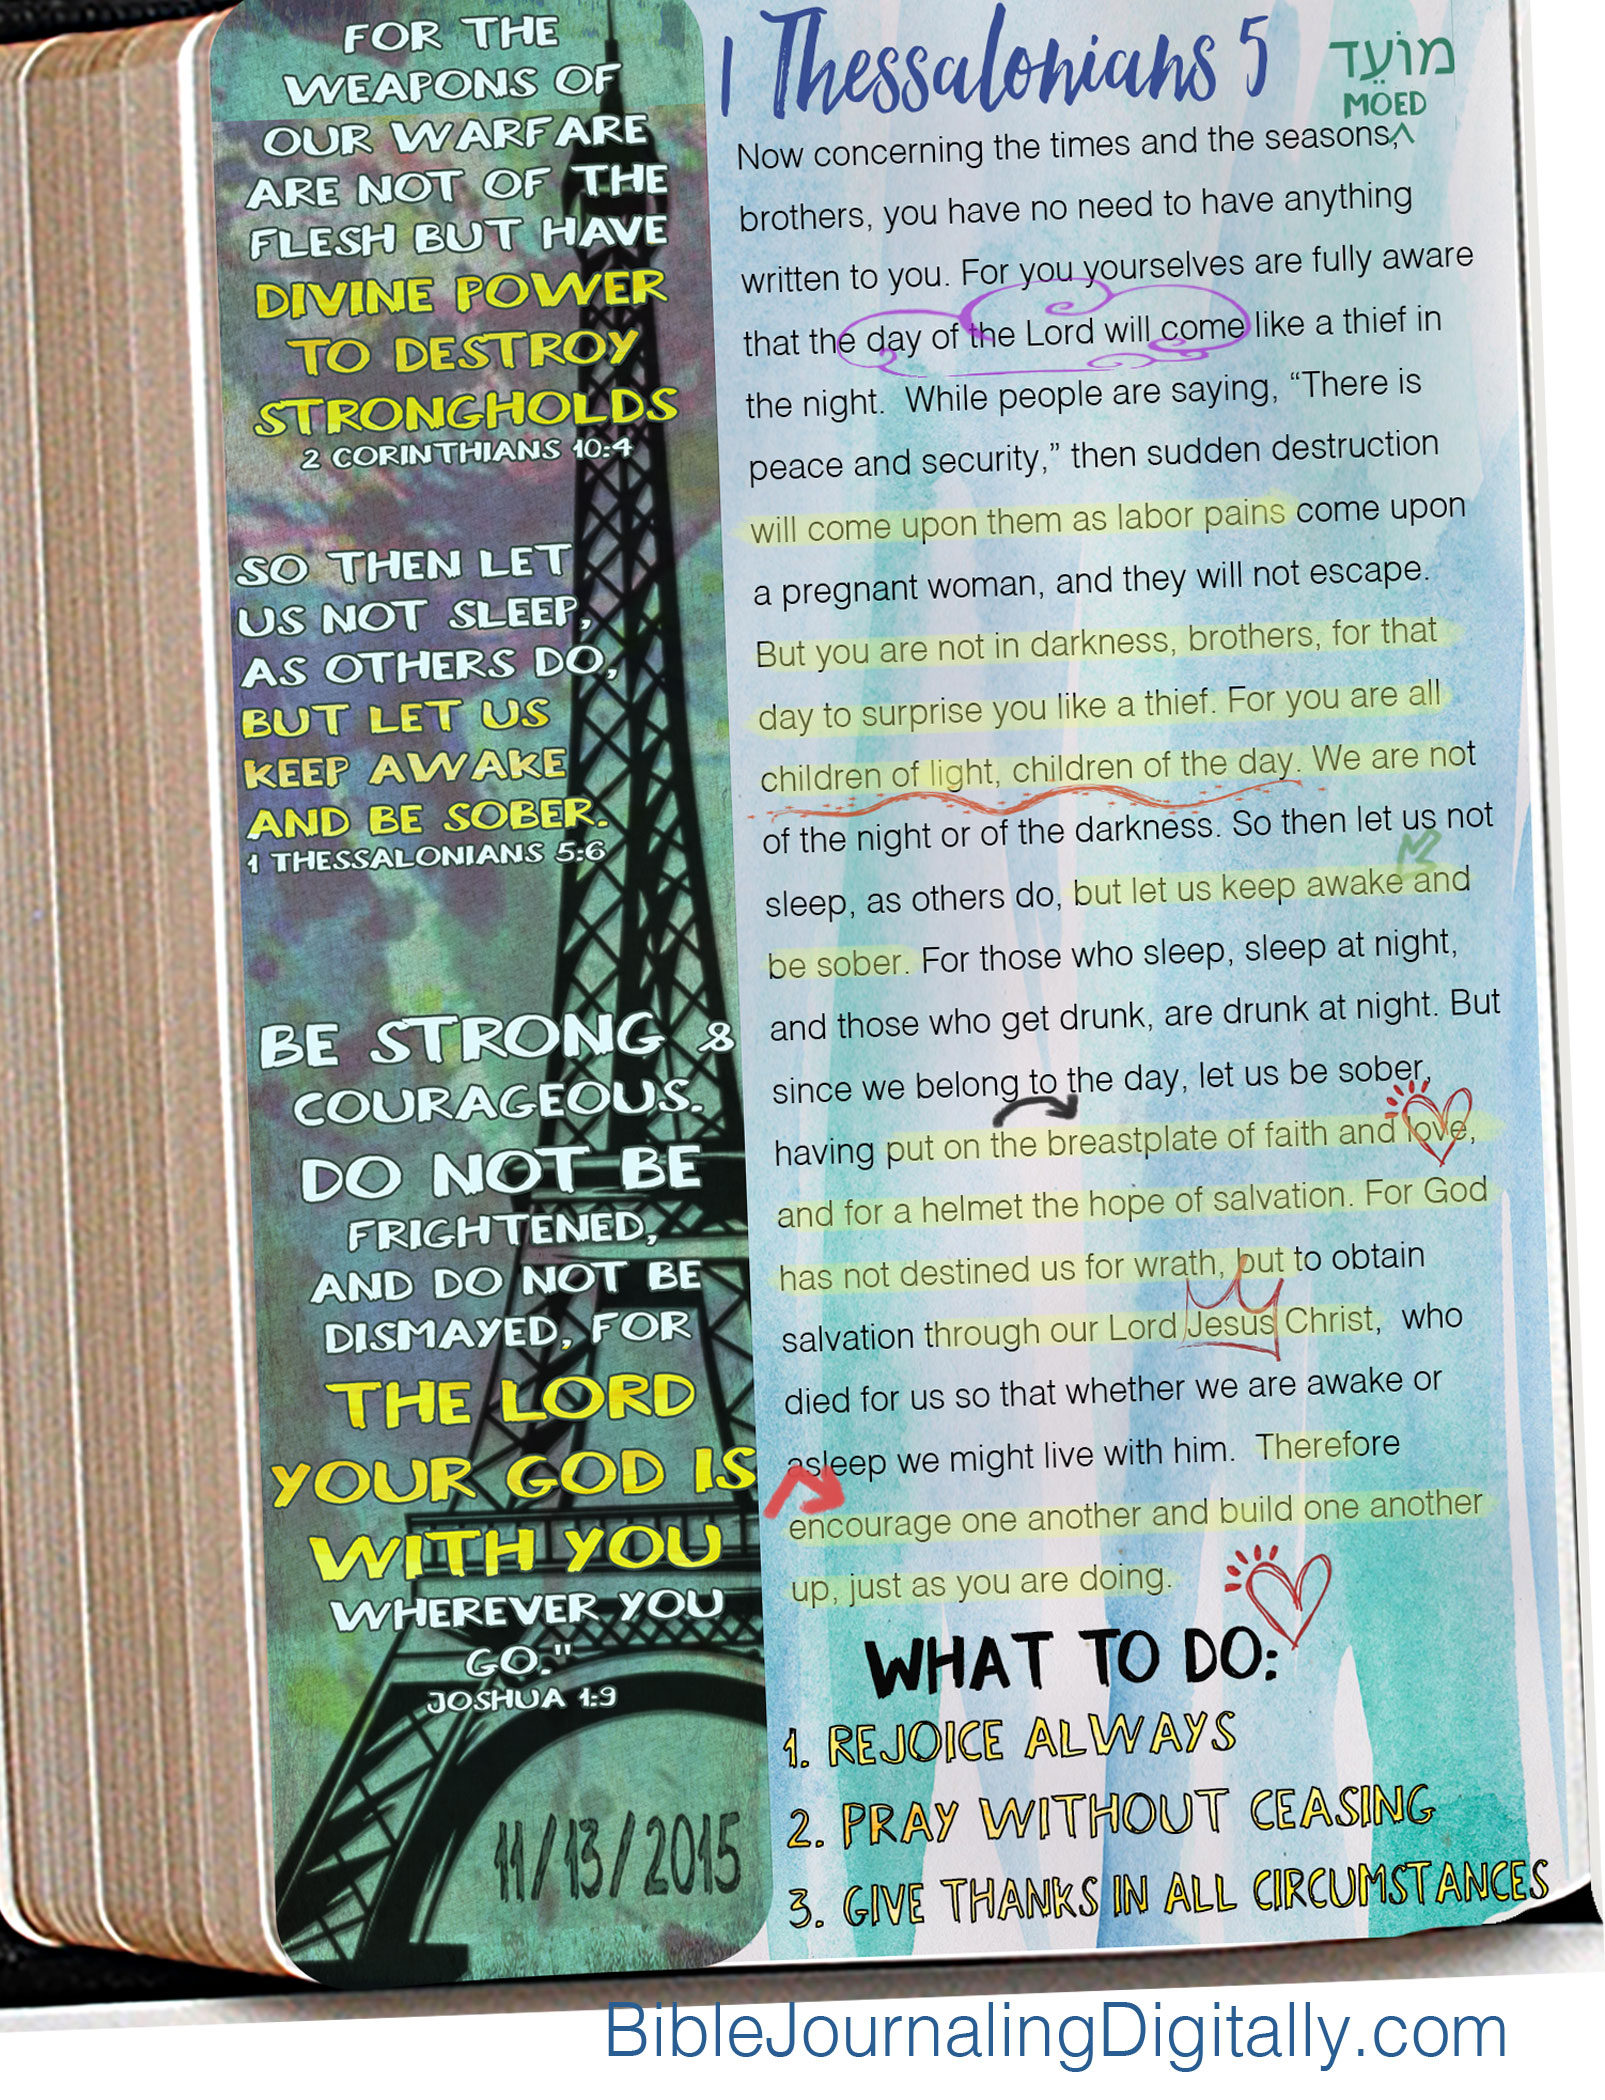 FOR THE
WEAPONS OF
OUR WARFARE
ARE NOT OF THE
FLESH BUT HAVE
DIVINE POWER
TO DESTROY
STRONGHOLDS
2 CORINTHIANS 10:4
SO THEN LET
US NOT SLEEP,
AS OTHERS DO,
BUT LET US
KEEP AWAKE
AND BE SOBER.
1 THESSALONIANS 5:6
BE STRONG &
COURAGEOUS.
DO NOT BE
FRIGHTENED,
AND DO NOT BE
DISMAYED, FOR
THE LORD
YOUR GOD IS
WITH YOU
WHEREVER YOU
GO."
JOSHUA 1:9
11/13/2015
1 Thessalonians 5
מוֹעֵד
MOED
Now concerning the times and the seasons,^
brothers, you have no need to have anything
written to you. For you yourselves are fully aware
that the day of the Lord will come like a thief in
the night.  While people are saying, “There is
peace and security,” then sudden destruction
will come upon them as labor pains come upon
a pregnant woman, and they will not escape.
But you are not in darkness, brothers, for that
day to surprise you like a thief. For you are all
children of light, children of the day. We are not
of the night or of the darkness. So then let us not
sleep, as others do, but let us keep awake and
be sober. For those who sleep, sleep at night,
and those who get drunk, are drunk at night. But
since we belong to the day, let us be sober,
having put on the breastplate of faith and love,
and for a helmet the hope of salvation. For God
has not destined us for wrath, but to obtain
salvation through our Lord Jesus Christ,  who
died for us so that whether we are awake or
asleep we might live with him.  Therefore
encourage one another and build one another
up, just as you are doing.
WHAT TO DO:
1. REJOICE ALWAYS
2. PRAY WITHOUT CEASING
3. GIVE THANKS IN ALL CIRCUMSTANCES
BibleJournalingDigitally.com